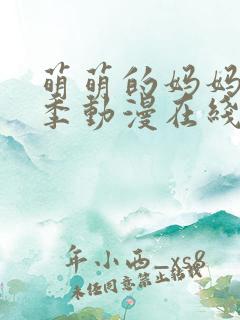 萌萌的妈妈
季動漫在綫
年小西_xs8
未经同意禁止转载